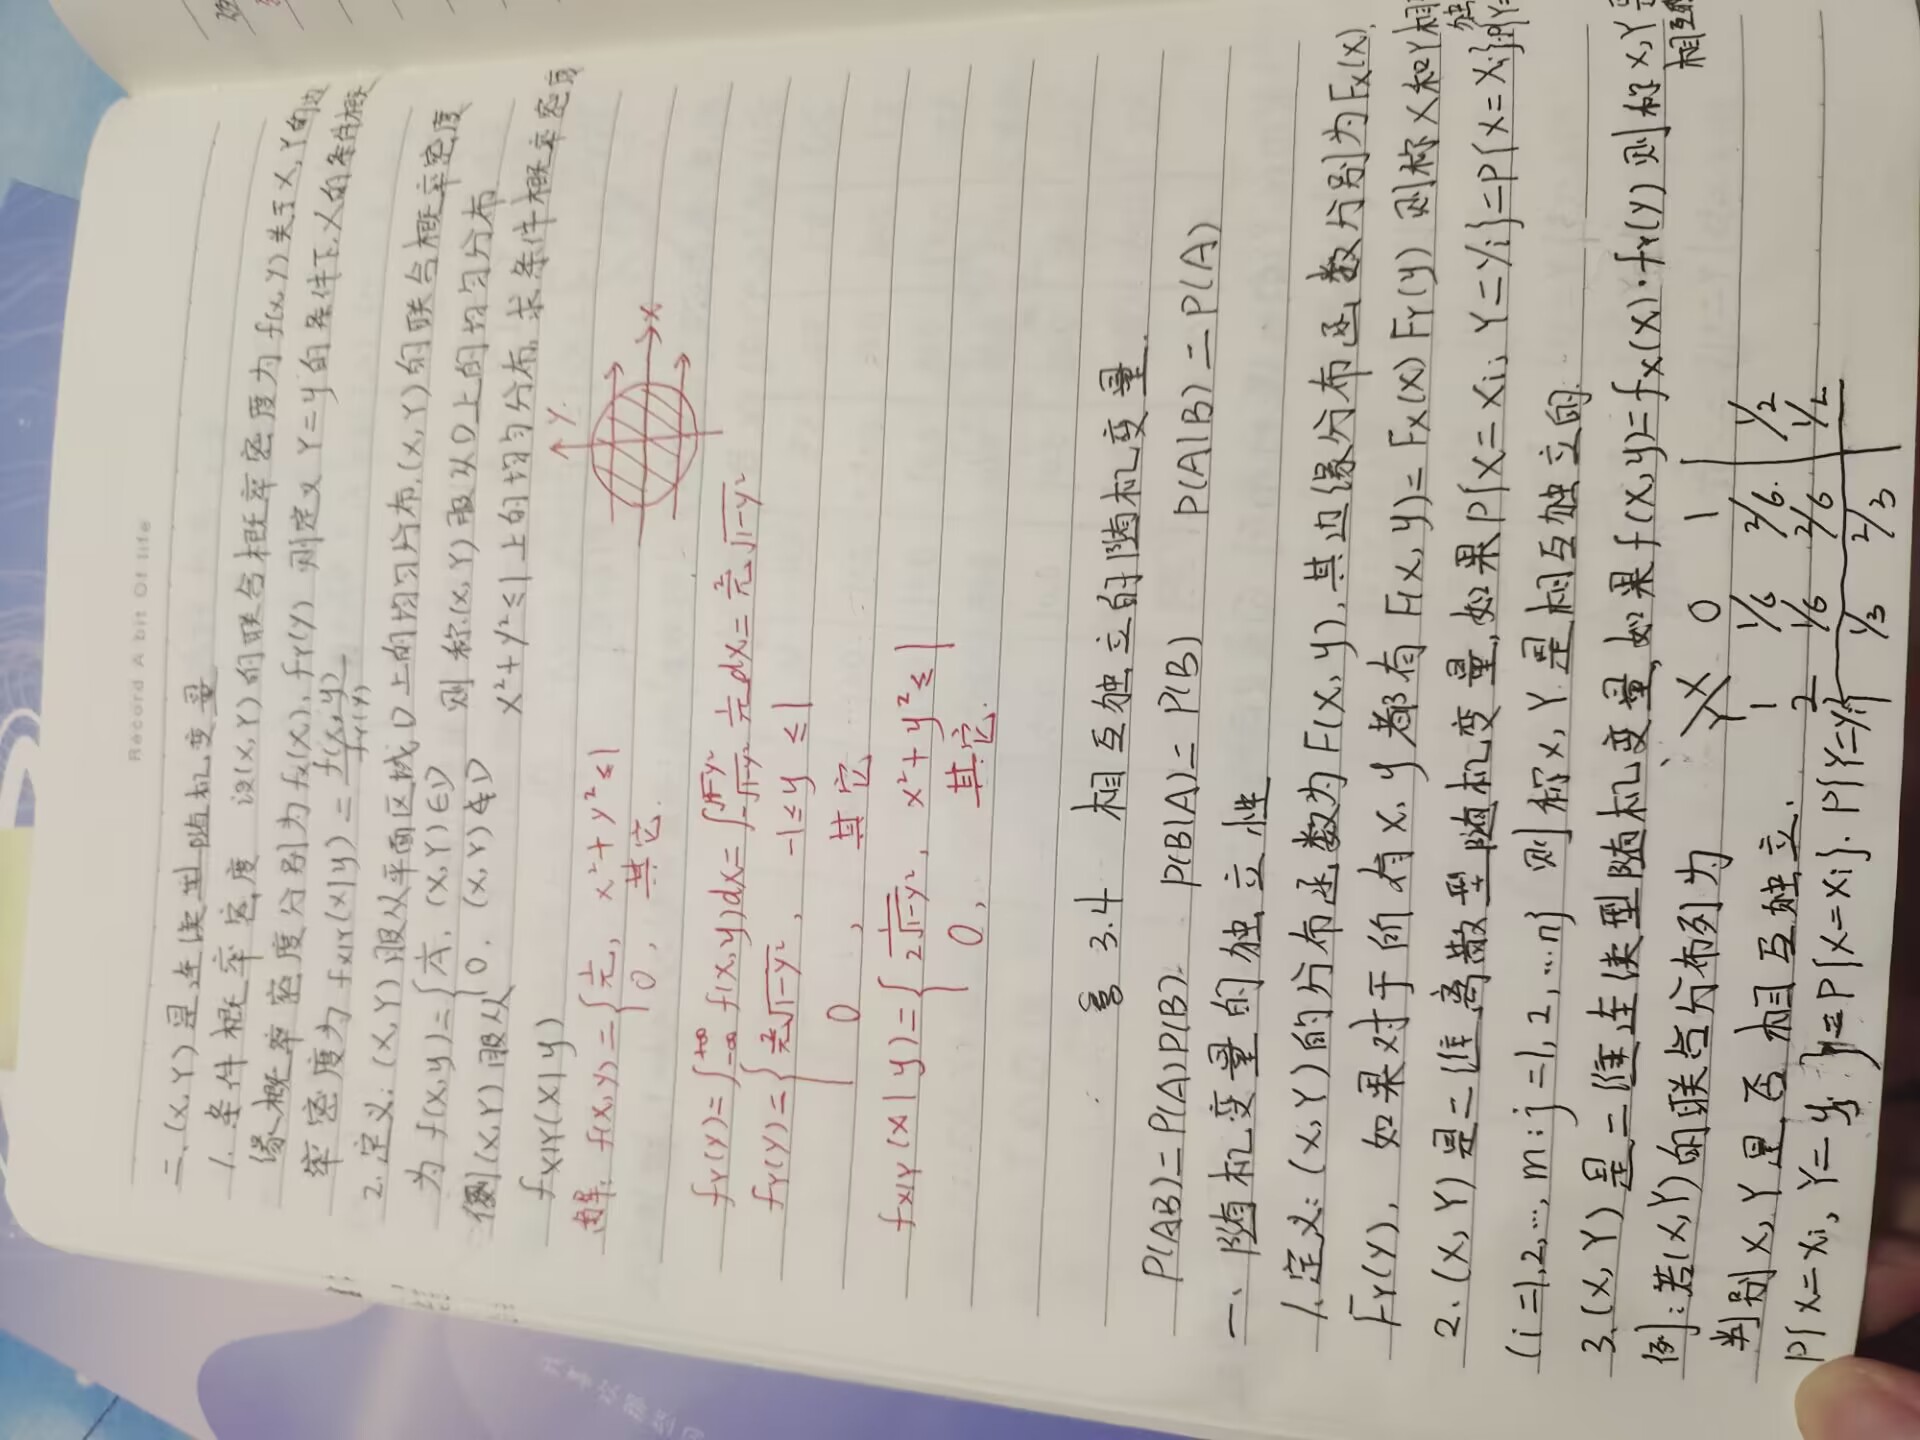 Record A bit Of life
二、(X,Y)是连续型随机变量
1.条件概率密度 设(X,Y)的联合概率密度为f(x,y)关于X,Y的边
缘概率密度分别为fx(x),fY(y) 则定义Y=y的条件下,X的条件概
率密度为fX|Y(x|y)=f(x,y)/fY(y)
2.定义:(X,Y)服从平面区域D上的均匀分布,(X,Y)的联合概率密度
为f(x,y)={1/A, (X,Y)∈D 则称(X,Y)服从D上的均匀分布
0, (X,Y)∉D
例(X,Y)服从 x²+y²≤1上的均匀分布,求条件概率密度
fX|Y(x|y)
解: f(x,y)={1/π, x²+y²≤1
0, 其它.
Y
X
fY(y)=∫_{-∞}^{+∞} f(x,y)dx=∫_{-√1-y²}^{√1-y²} 1/π dx=2/π √1-y²
fY(y)={2/π √1-y², -1≤y≤1
0, 其它
fX|Y(x|y)={1/(2√1-y²), x²+y²≤1
0, 其它.
3.4 相互独立的随机变量.
P(AB)=P(A)P(B). P(B|A)=P(B) P(A|B)=P(A)
一、随机变量的独立性
1.定义:(X,Y)的分布函数为F(x,y),其边缘分布函数分别为Fx(x),
FY(y), 如果对于所有x,y都有F(x,y)=Fx(x)FY(y) 则称X和Y相
独
2.(X,Y)是二维离散型随机变量,如果P{X=xi,Y=yj}=P{X=xi}·P{Y=
(i=1,2,…,m;j=1,2,…n} 则称X,Y是相互独立的.
3.(X,Y)是二维连续型随机变量,如果f(x,y)=fX(x)·fY(y)则称X,Y是
相互独
例:若(X,Y)的联合分布列为
Y X 0 1
1 1/6 2/6 1/2
2 1/6 2/6 1/2
1/3 2/3
判别X,Y是否相互独立.
P{X=xi,Y=yj}=P{X=xi}·P{Y=yj}